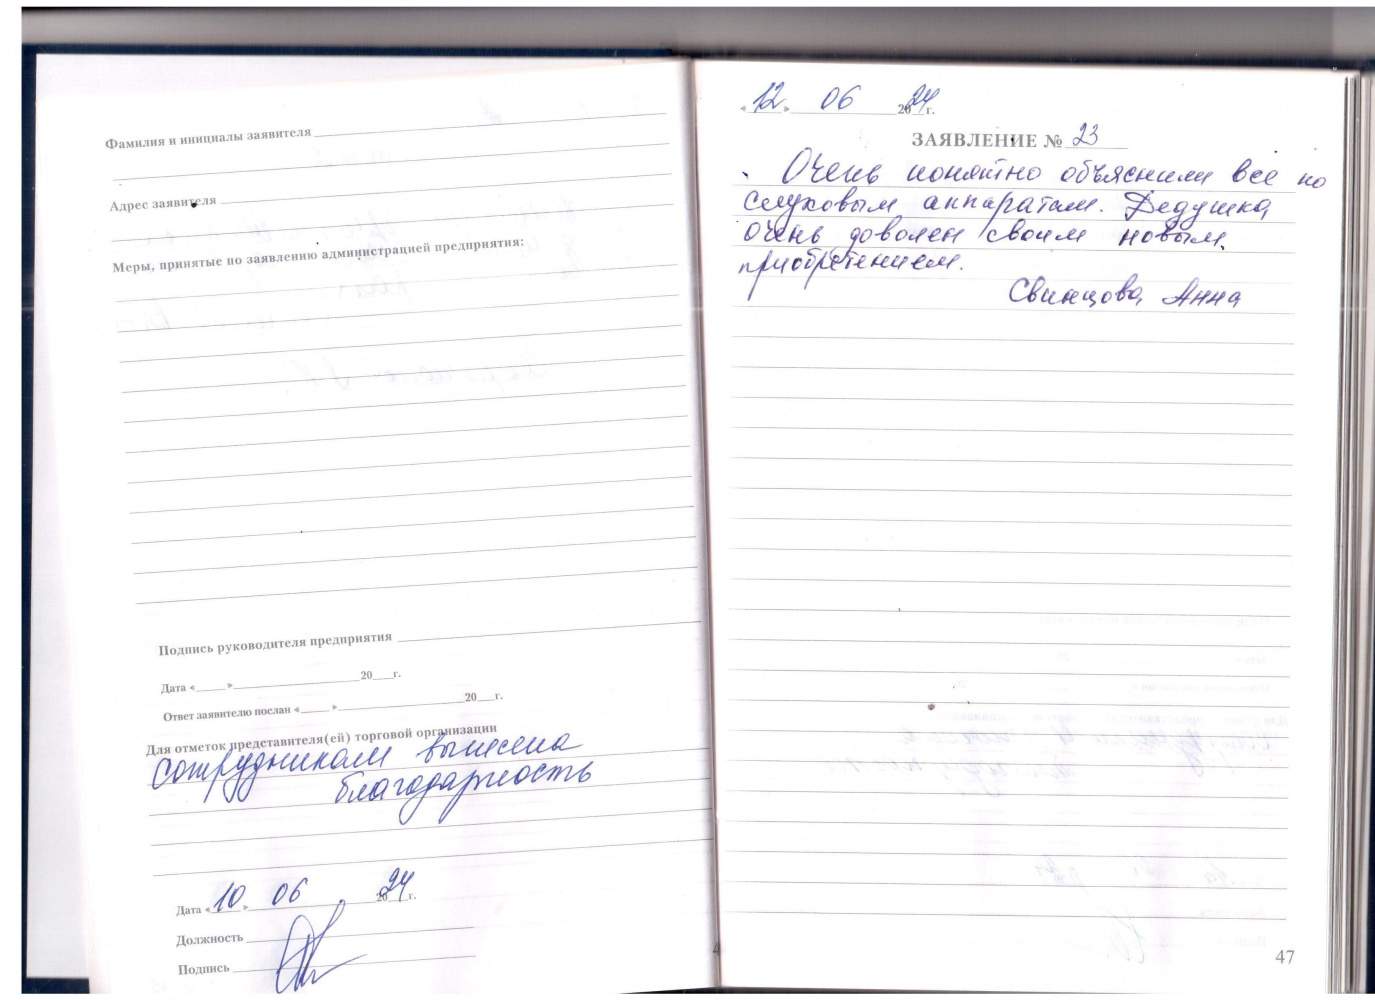 Фамилия и инициалы заявителя
Адрес заявителя
Меры, принятые по заявлению администрацией предприятия:
Подпись руководителя предприятия
Дата «____»____20__г.
Ответ заявителю послан «____»____20__г.
Для отметок представителя(ей) торговой организации
Сотрудникам вынесена
благодарность
Дата «10» 06 2024г.
Должность
Подпись
«12» 06 2024г.
ЗАЯВЛЕНИЕ № 23
Очень понятно объяснили все по
слуховым аппаратам. Дедушка
очень доволен своим новым
приобретением.
Свинцова Анна
47